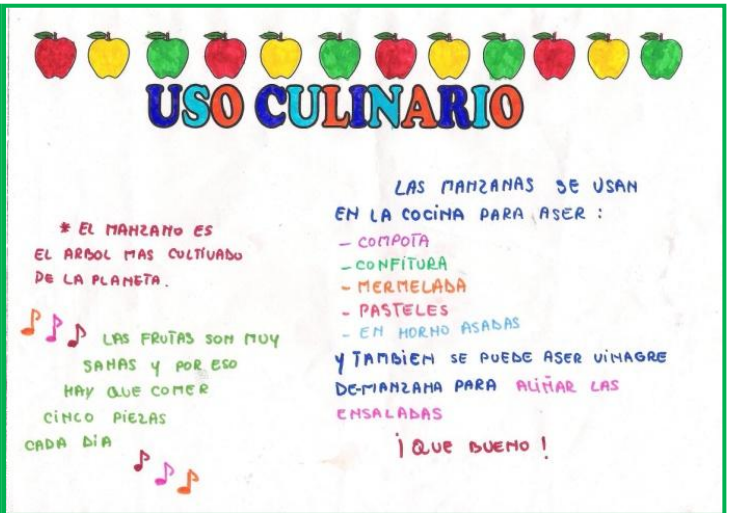 USO CULINARIO
* EL MANZANO ES
EL ARBOL MAS CULTIVADO
DE LA PLANETA.
LAS FRUTAS SON MUY
SANAS Y POR ESO
HAY QUE COMER
CINCO PIEZAS
CADA DIA
LAS MANZANAS SE USAN
EN LA COCINA PARA ASER :
- COMPOTA
- CONFITURA
- MERMELADA
- PASTELES
- EN HORNO ASADAS
Y TAMBIEN SE PUEDE ASER VINAGRE
DE-MANZANA PARA ALIÑAR LAS
ENSALADAS
¡ QUE BUENO !